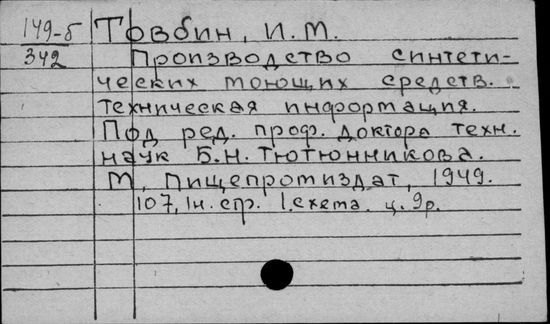 149-б
342
Товбин, И.М.
Производство синтети-
ческих моющих средств.
Техническая информация.
Под ред. проф. доктора техн.
наук Б.Н. Тютюнникова.
М, Пищепромиздат, 1949.
107, 1н. стр. 1 схема. ц. 9р.